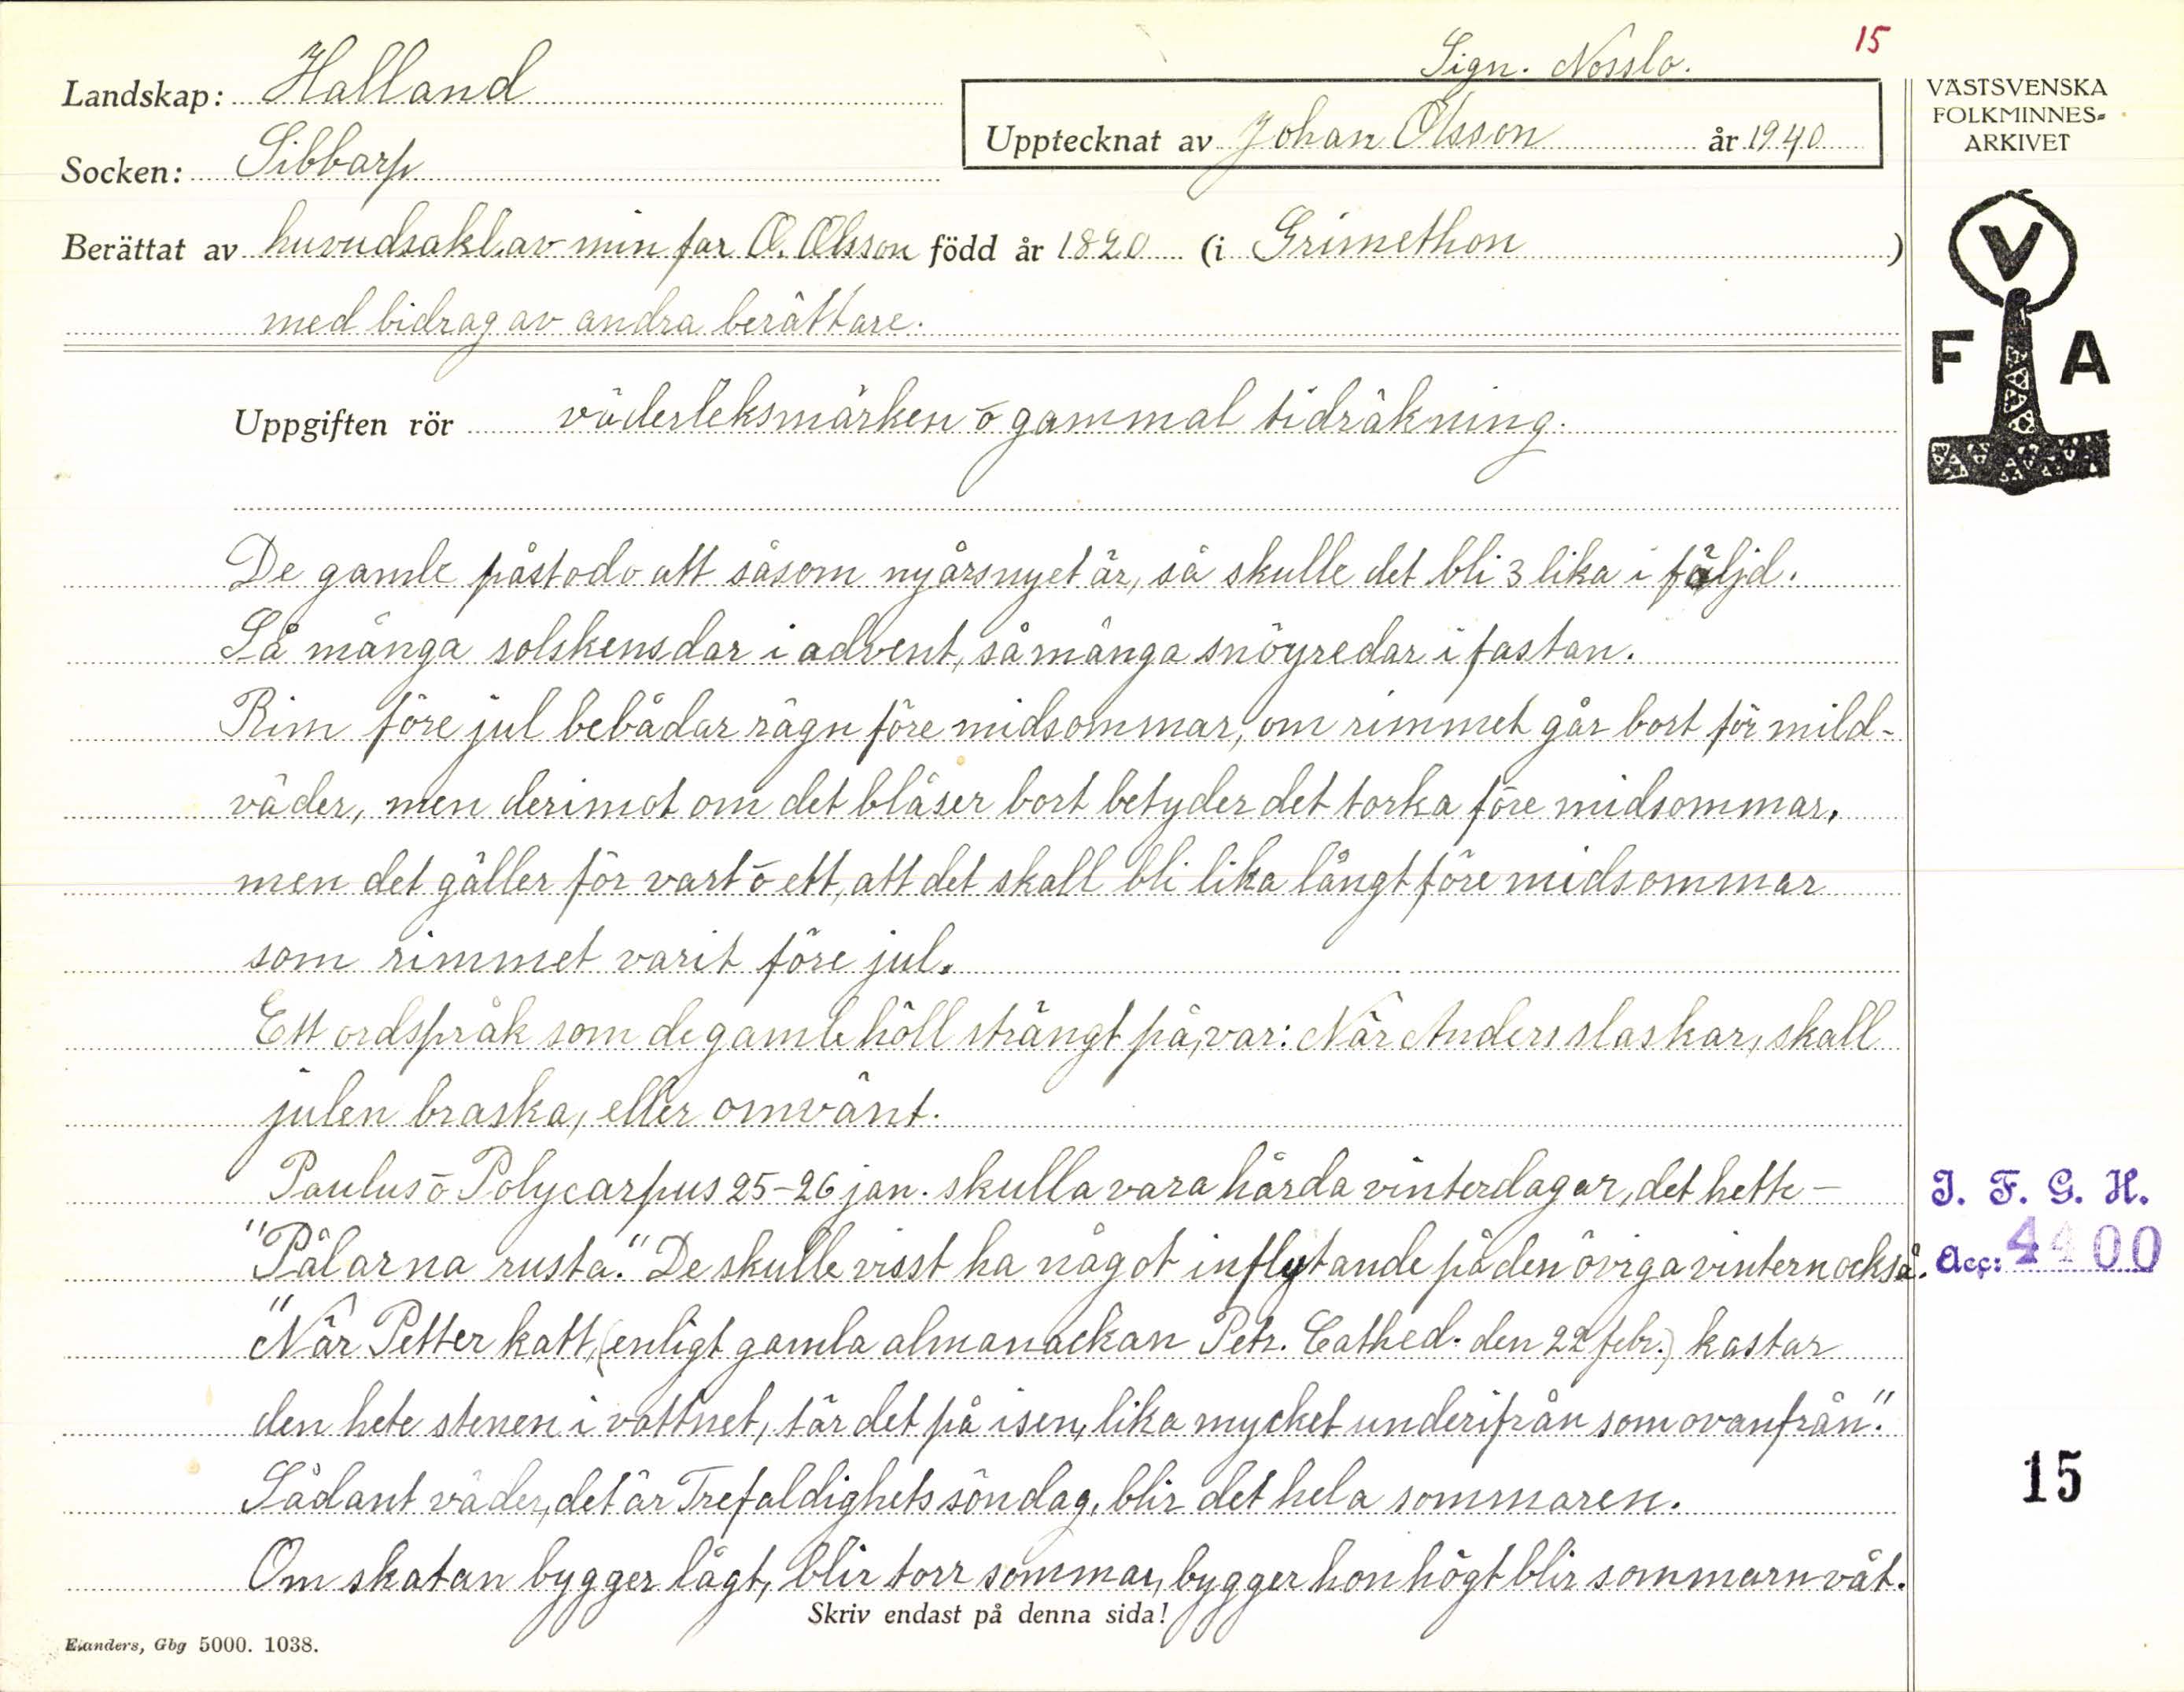 15
Sign. Nosslo.
Landskap: Halland
Upptecknat av Johan Olsson år 1940
Socken: Sibbarp
Berättat av huvudsakl. av min far O. Olsson född år 1820 (i Grimethon)
med bidrag av andra berättare.
VÄSTSVENSKA
FOLKMINNES=
ARKIVET
V
F A
Uppgiften rör väderleksmärken o gammal tidräkning.
De gamle påstodo att såsom nyårsnyet är, så skulle det bli 3 lika i följd.
Så många solskensdar i advent, så många snöyredar i fastan.
Rim före jul bebådar rägn före midsommar, om rimmet går bort för mild-
väder, men derimot om det blåser bort betyder det torka före midsommar,
men det gäller för vart o ett, att det skall bli lika långt före midsommar
som rimmet varit före jul.
Ett ordspråk som de gamle höll strängt på, var: När Anders slaskar, skall
julen braska, eller omvänt.
Paulus o Polycarpus 25-26 jan. skulla vara hårda vinterdagar, det hette -
"Pålarna rusta." De skulle visst ha något inflytande på den övriga vintern också.
"När Petter katt, (enligt gamla almanackan Petr. Cathed. den 22 febr.) kastar
den hete stenen i vattnet, tär det på isen, lika mycket underifrån som ovanfrån."
Sådant väder, det är Trefaldighets söndag, blir det hela sommaren.
Om skatan bygger lågt, blir torr sommar, bygger hon högt blir sommarn våt.
Skriv endast på denna sida!
Elanders, Gbg 5000. 1038.
I. F. G. H.
Acc: 4400
15